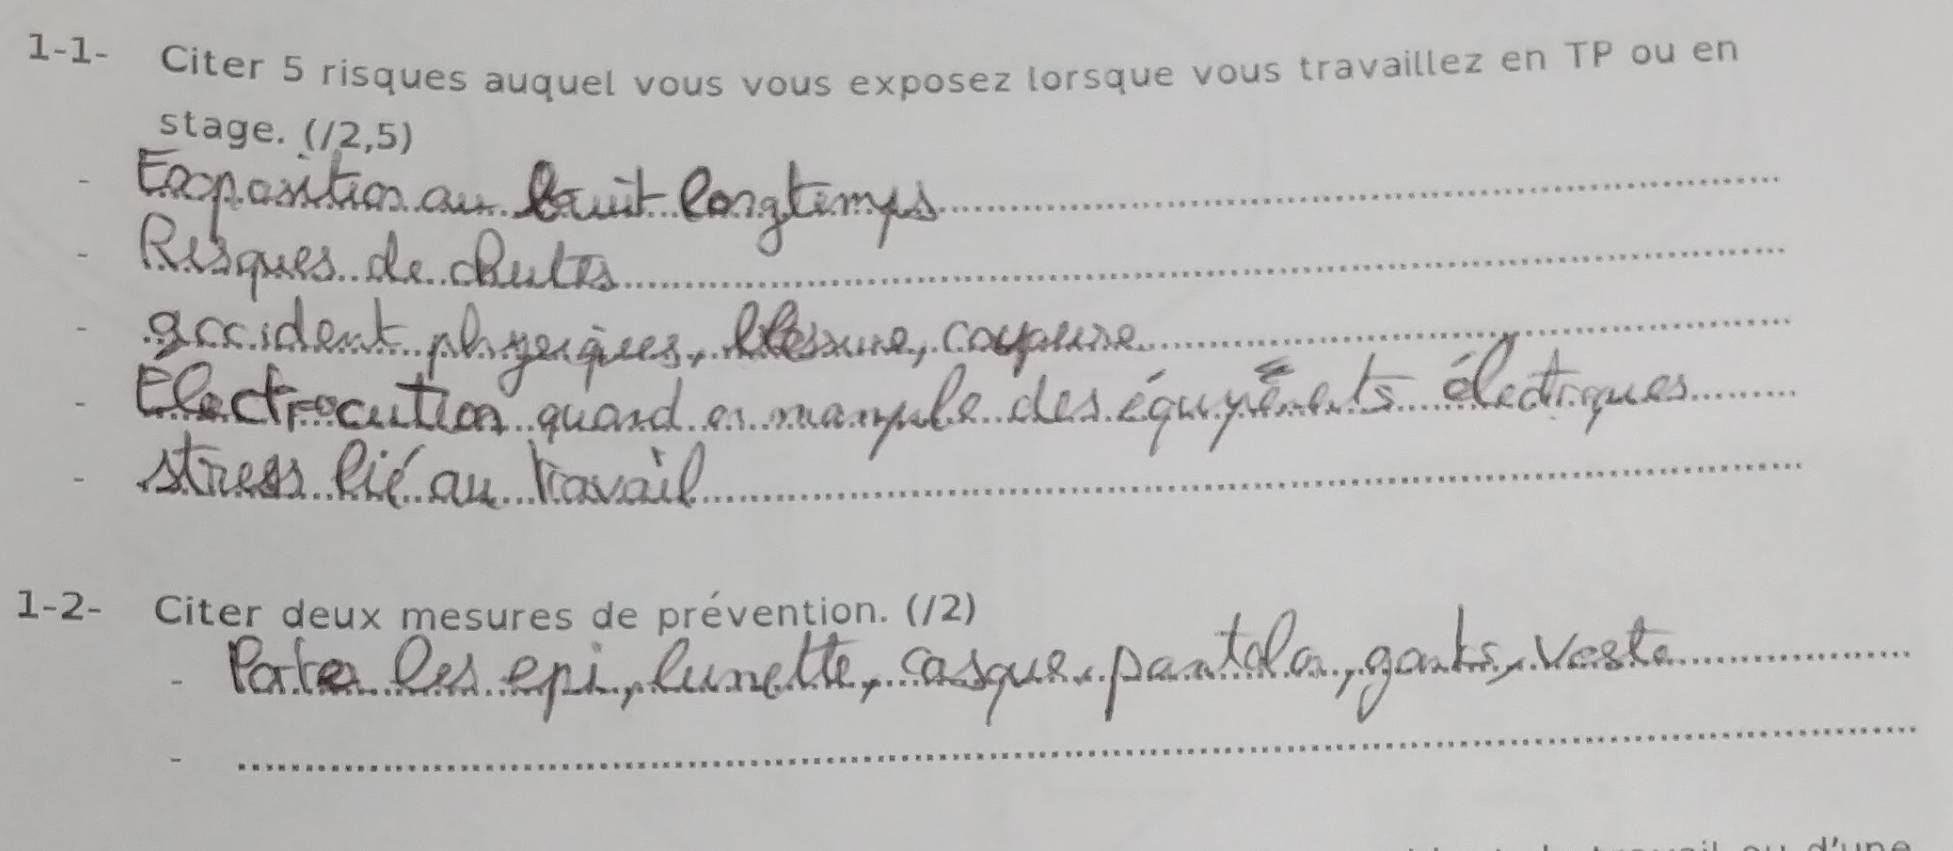 1-1- Citer 5 risques auquel vous vous exposez lorsque vous travaillez en TP ou en
stage. (/2,5)
- Exoposition au bruit longtemps
- Risques de chutes
- accident physiques, blessure, coupure
- Electrocution quand on manipule des équipements électriques
- stress lié au travail
1-2- Citer deux mesures de prévention. (/2)
- Porter les epi, lunette, casque. pantalon, gants, veste
-
d'une